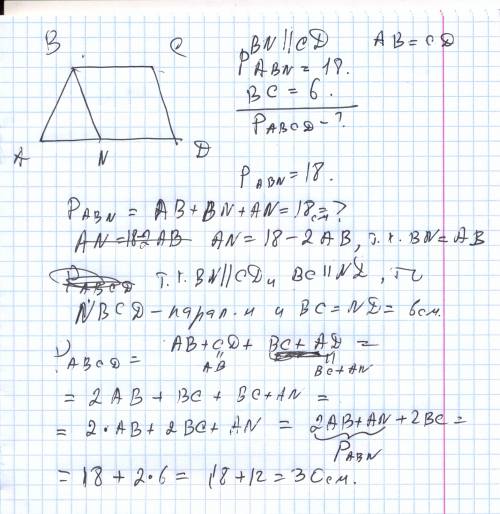 B C
A N D
BN || CD AB = CD
P ABN = 18.
BC = 6.
P ABCD - ?
P ABN = 18.
P ABN = AB + BN + AN = 18 см ?
AN = 18-2AB AN = 18 - 2AB, т.к. BN = AB
P ABCD т.к. BN || CD и BC || ND, то
NBCD - парал-м и BC = ND = 6см.
P ABCD = AB + CD + BC + AD =
AB BC + AN
= 2AB + BC + BC + AN =
= 2·AB + 2BC + AN = 2AB + AN + 2BC =
P ABN
= 18 + 2·6 = 18 + 12 = 30см.